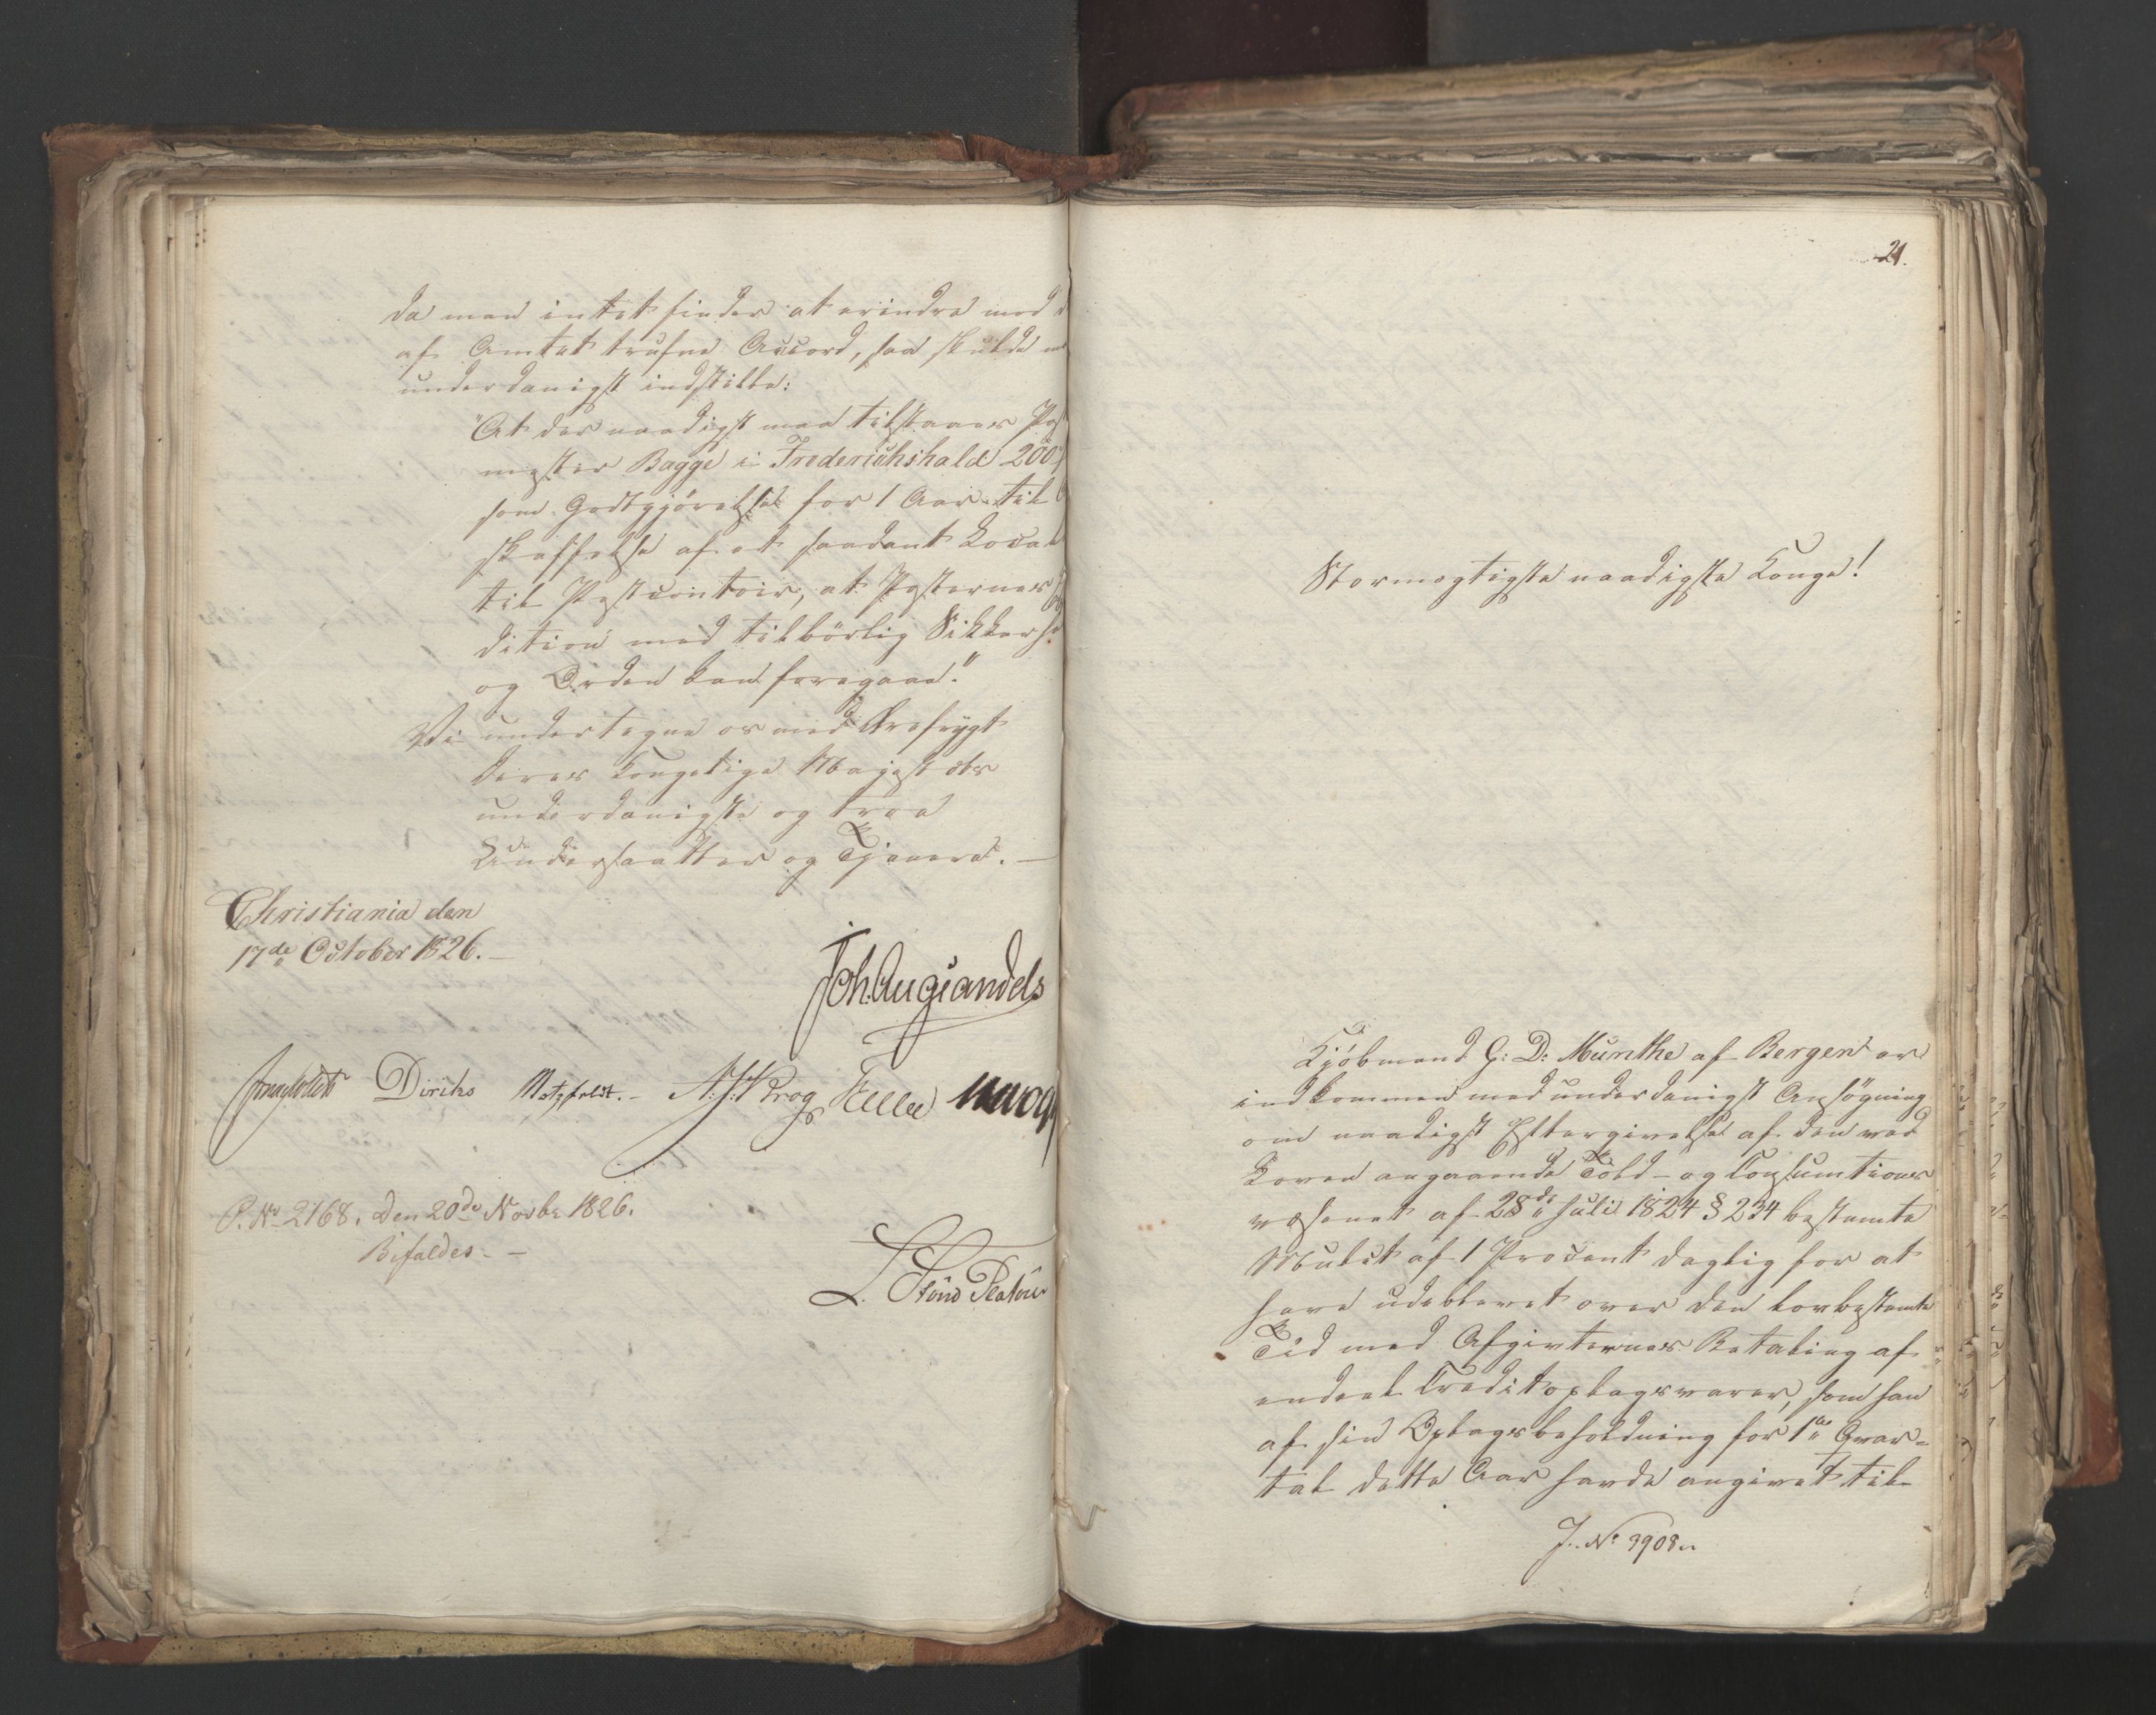 da man intet finder at erindre mod d
af Amtet trufne Accord, saa skulde m
underdanigst indstille:
"At der naadigst maa tilstaaes Post
mester Bagge i Frederichshald 200
som Godtgjörelse for 1 Aar til
skaffelse af et saadant Local
til Postcontoir, at Posternes
dition med tilbörlig Sikkerhe
og Orden kan foregaae."
Vi undertegne os med Ærefrygt
Deres Kongelige Majestæts
underdanigste og troe
Undersaatter og Tjenere. —
Christiania den
17de October 1826. —
Joh. Aug Sandels
Diriks Motzfeldt. - N. J. Krog
P. No 2168. Den 20de Novbr 1826.
Bifaldes. —
21.
Stormægtigste naadigste Konge!
Kjöbmand G: D: Munthe af Bergen er
indkommen med underdanigst Ansögning
om naadigst Eftergivelse af den ved
Loven angaaende Told- og Consumtions
væsenet af 28de Juli 1824 § 234 bestemte
Mulct af 1 Procent daglig for at
have udeblevet over den lovbestemte
Tid med Afgivternes Betaling af
endeel Creditoplagsvarer, som han
af sin Oplagsbeholdning for 1te Qvar=
tal dette Aar havde angivet til
J. No 3908.